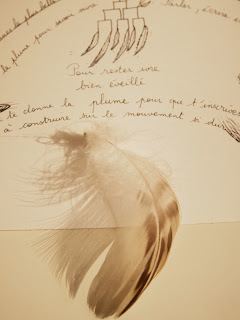 la plume pour
Parler, écrire
= Pour rester une =
bien éveillé
te donne la plume pour que t'inscrives
à construire sur le mouvement si dur